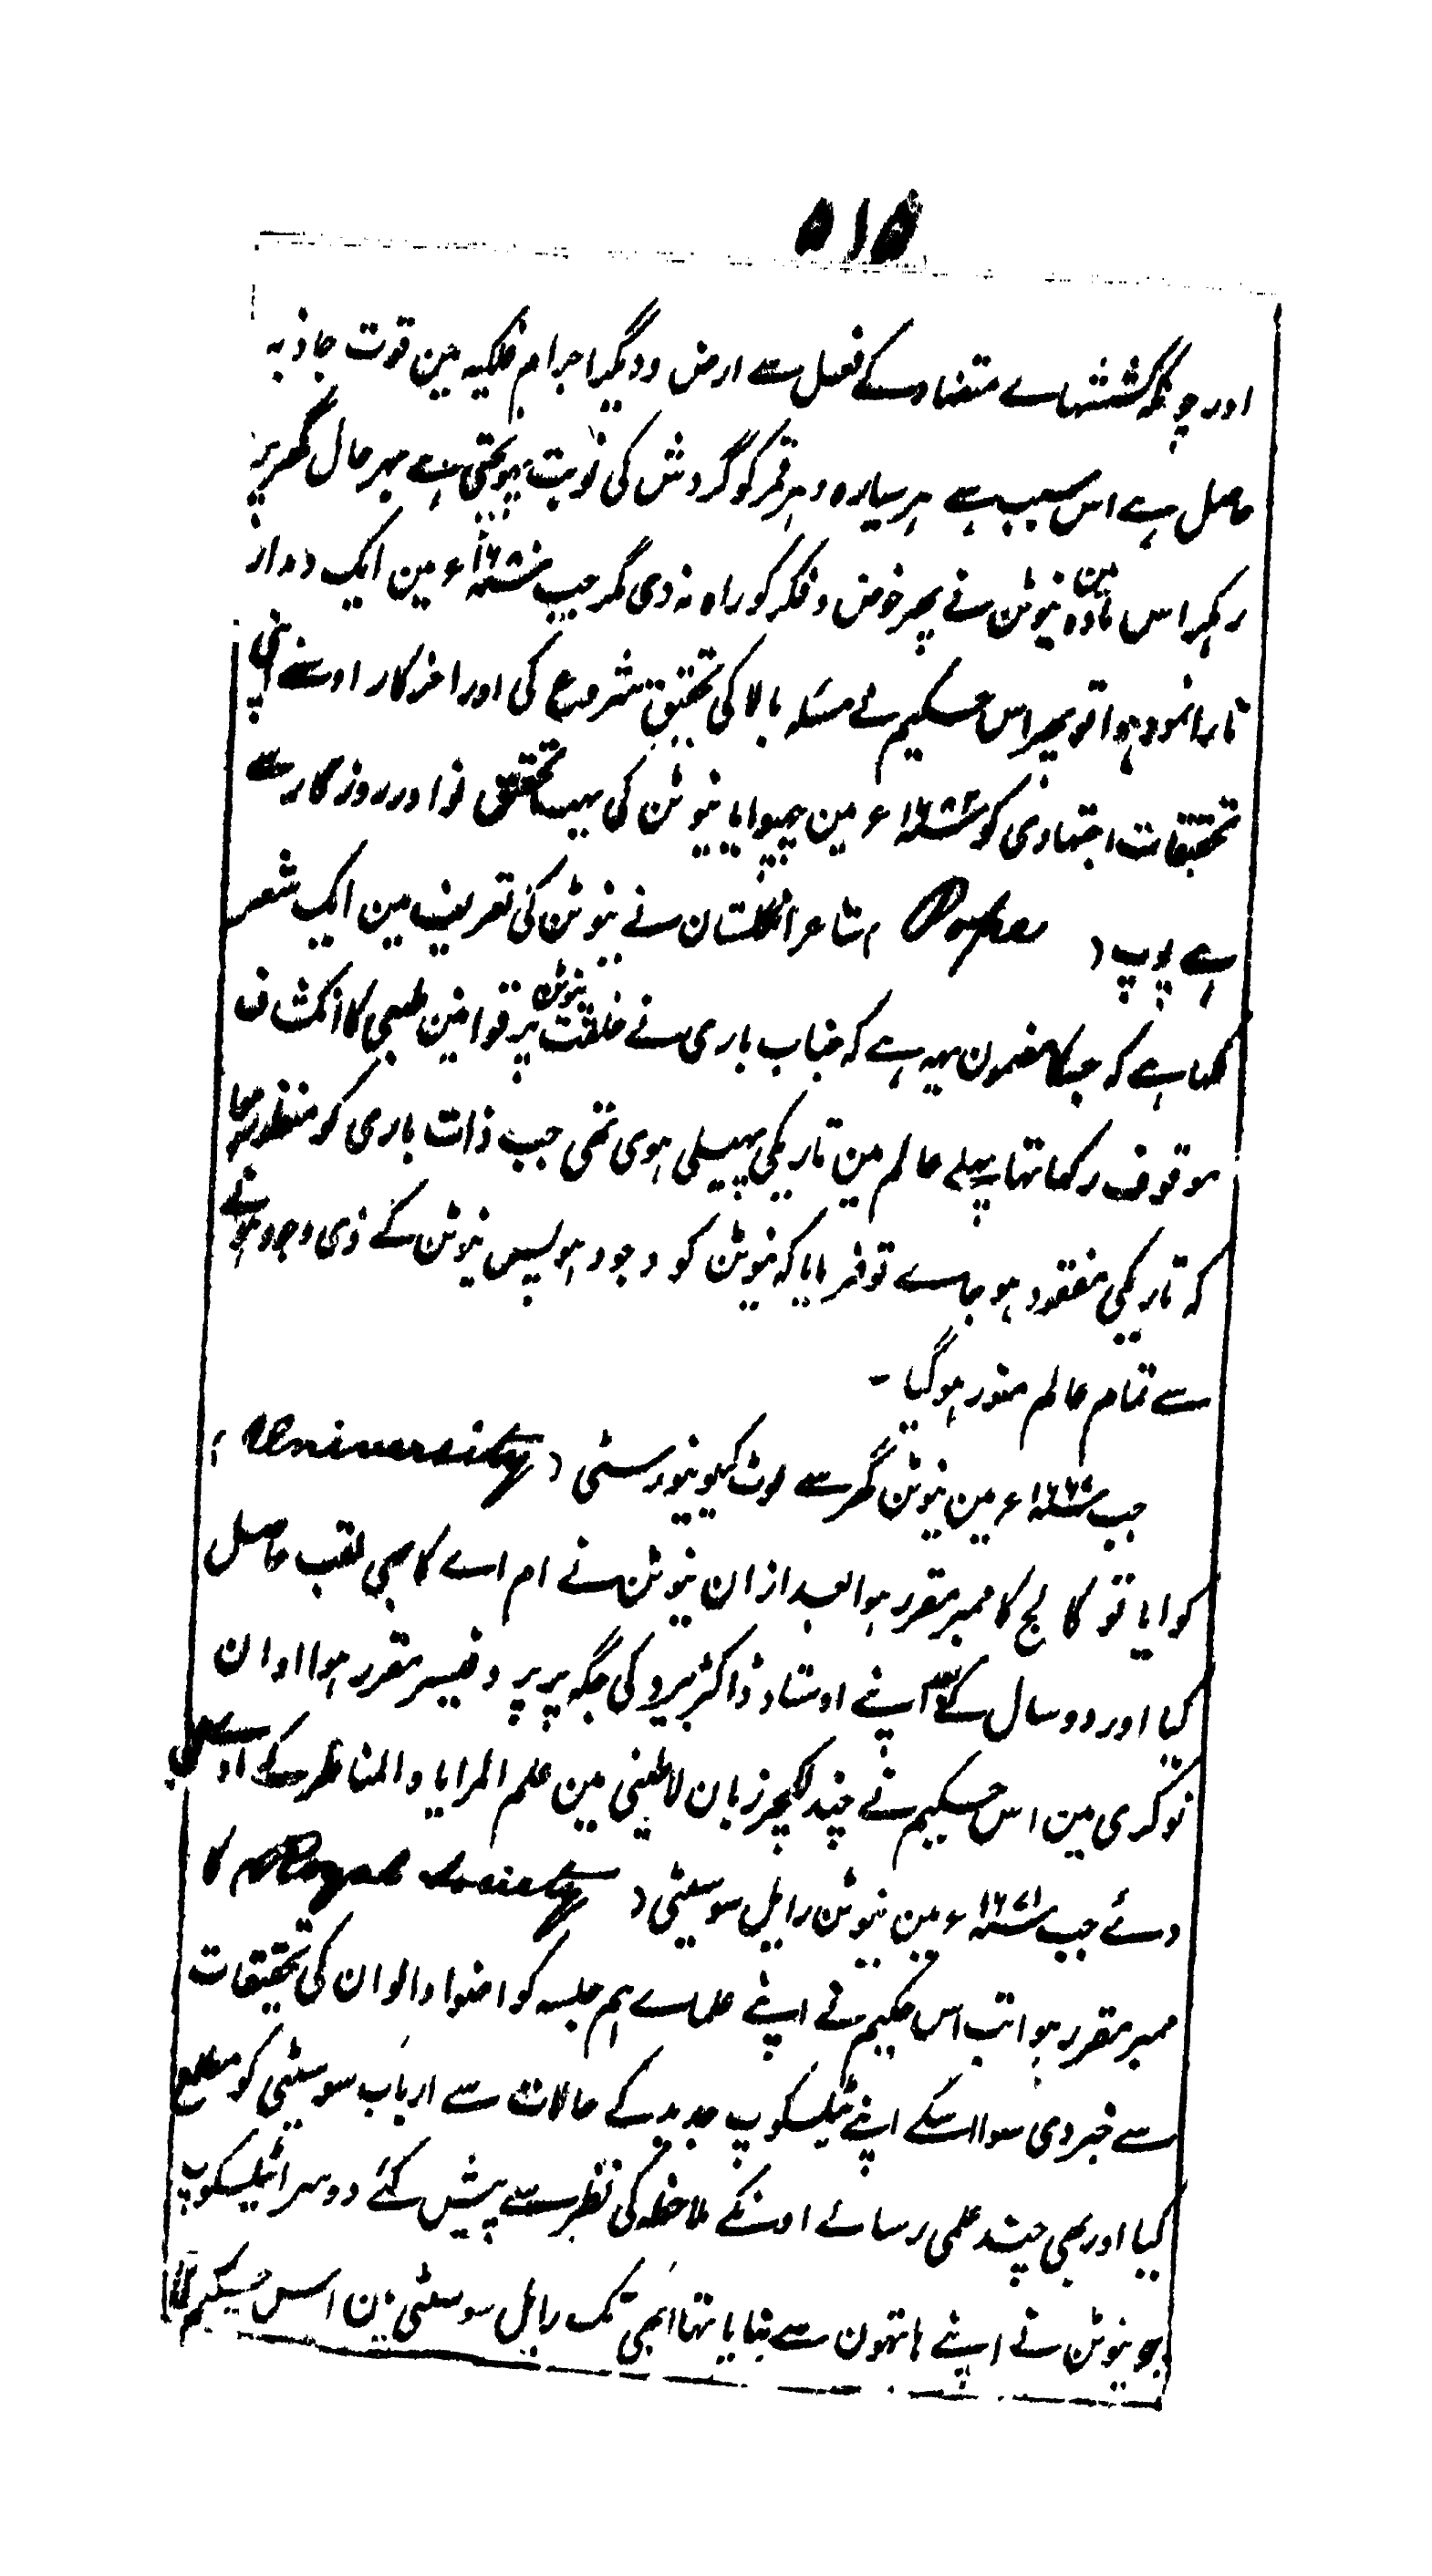 ۵۱۵
اور چونکہ کششہاے متضاد کے فعل سے ارض و دیگر اجرام فلکیہ مین قوت جاذبہ
حاصل ہے اس سبب سے ہر سیارہ و ہر قمر کو گردش کی نوبت پہونچتی ہے بہر حال گھر پر
رہکر اس مادہ مین نیوٹن نے پھر خوض و فکر کو راہ نہ دی مگر جب سنہ ۱۶۸۰ء مین ایک دمدار
تارا نمود ہوا تو پھر اس حکیم نے مسئلہ بالا کی تحقیق شروع کی اور اخر کار اوسنے اپنی
تحقیقات اجتہادی کو سنہ ء مین چھپوایا نیوٹن کی یہہ تحقیق نوادر روزگار سے
ہے پوپ ( Pope ) شاعر انگلستان نے نیوٹن کی تعریف مین ایک شعر
کہا ہے کہ جسکا مضمون یہہ ہے کہ جناب باری نے خلقت نیوٹن پر قوانین طبعی کا انکشاف
موقوف رکھا تھا پہلے عالم مین تاریکی پھیلی ہوی تھی جب ذات باری کو منظور ہوا
کہ تاریکی مفقود ہو جاے تو فرمایا کہ نیوٹن کو وجود ہو پس نیوٹن کے ذی وجود ہونے
سے تمام عالم منور ہو گیا ۔
جب سنہ ۱۶۶۷ء مین نیوٹن گھر سے لوٹ کیو نیورسٹی ( University )
کو ایا تو کالج کا ممبر مقرر ہوا بعد ازان نیوٹن نے ام اے کا بھی لقب حاصل
کیا اور دو سال کے اپنے اوستاد ڈاکٹر بیرو کی جگہ پر پروفیسر مقرر ہوا اوان
نوکری مین اس حکیم نے چند لکچر زبان لاطینی مین علم المرایا والمناظر کے
دئے جب سنہ ۱۶۷۱ء مین نیوٹن رایل سوسیٹی ( Royal Society ) کا
ممبر مقرر ہوا تب اس حکیم نے اپنے علماے ہم جلسہ کو اضوا و الوان کی تحقیقات
سے خبر دی سوا اسکے اپنے ٹیلسکوپ جدید کے حالات سے ارباب سوسیٹی کو مطلع
کیا اور بھی چند علمی رسالے اونکے ملاحظہ کی نظر سے پیش کئے دوسرا ٹیلسکوپ
جو نیوٹن نے اپنے ہاتھون سے بنایا تھا ابھی تک رایل سوسیٹی مین اس حکیم کا